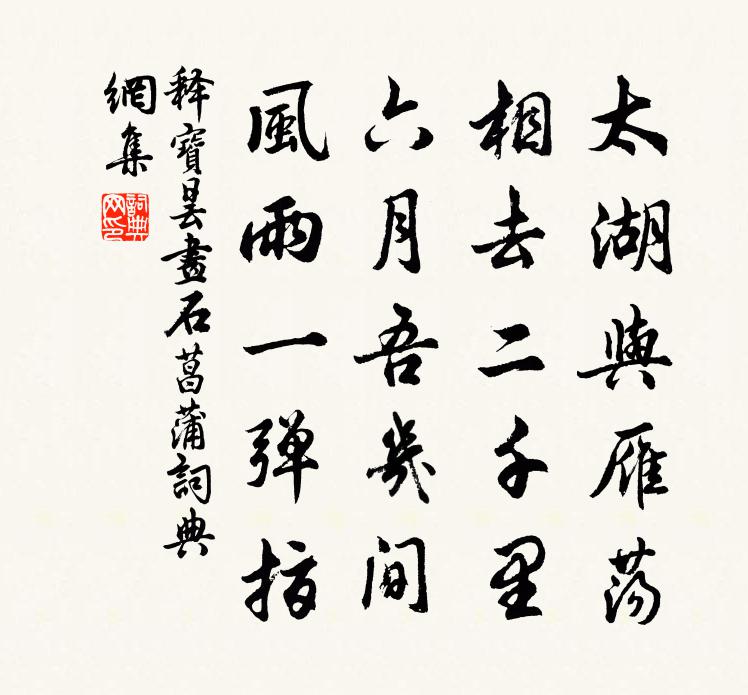 太湖與雁蕩
相去二千里
六月吾幾間
風雨一弹指
释寶昙畫石菖蒲詞典
網集
詞典
网印